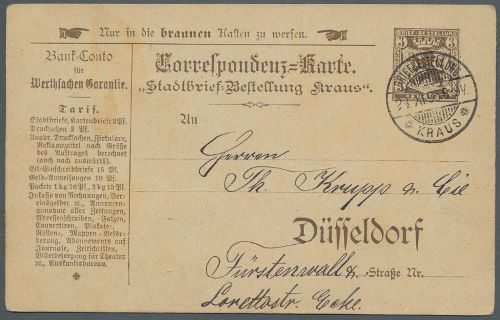 Nur in die braunen Kasten zu werfen.
Bank-Conto
für
Werthsachen Garantie.
Tarif.
Stadtbriefe, Kartenbriefe 3 Pf.
Drucksachen 2 Pf.
Unadr. Drucksachen, Zirkulare,
Reklamezettel nach Größe
des Auftrages berechnet
(auch nach auswärts).
Eil-Einschreibbriefe 15 Pf.
Geld-Anweisungen 10 Pf.
Packete 1 kg 10 Pf., 3 kg 15 Pf.
Inkasso von Rechnungen, Ver-
einsgelder ꝛc., Annoncen-
annahme aller Zeitungen,
Adressenschreiben, Falzen,
Convertiren, Plakate-
Kosten-, Mappen-Beför-
derung, Abonnements auf
Journale, Zeitschriften,
Billetbesorgung für Theater
ꝛc., Auskunftsbureau.
Correspondenz=Karte.
„Stadtbrief=Bestellung Kraus“.
BRIEF-BESTELLUNG
3 3
KRAUS
An
Herren
Th. Krupp & Cie
Düsseldorf
Fürstenwall & -Straße Nr.
Lorettostr. Ecke.